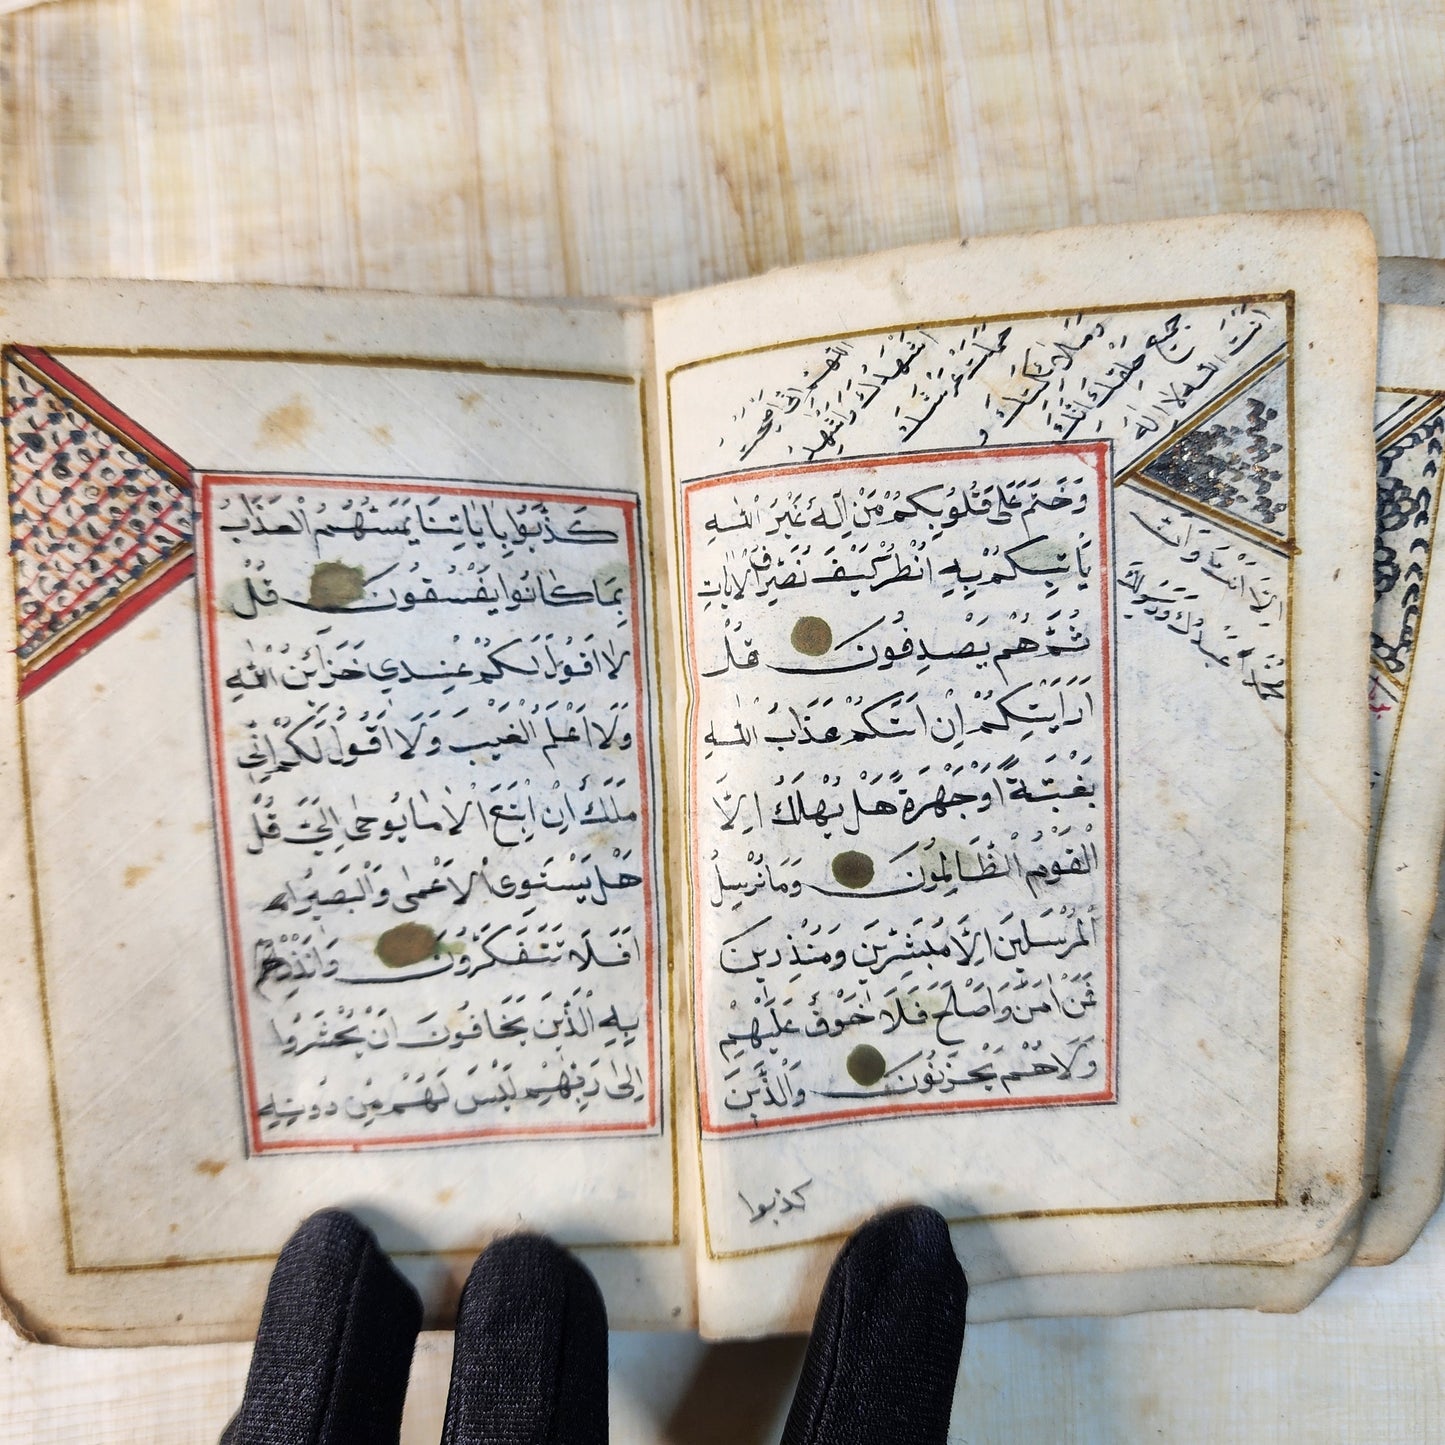 اللهم انى اصبحت
اشهدك واشهد
حملت عرشك
وملائكتك و
جميع خلقك انك
انت الله لا اله
الا انت وان
محمدا عبدك ورسولك
وَخَتَمَ عَلَى قُلُوبِكُمْ مَنْ اِلَهٌ غَيْرُ اللهِ
يَاْتِيكُمْ بِهِ اُنْظُرْ كَيْفَ نُصَرِّفُ الْايَاتِ
ثُمَّ هُمْ يَصْدِفُونَ قُلْ
اَرَاَيْتَكُمْ اِنْ اَتَيكُمْ عَذَابُ اللهِ
بَغْتَةً اَوْ جَهْرَةً هَلْ يُهْلَكُ اِلَّا
الْقَوْمُ الْظَّالِمُونَ وَمَا نُرْسِلُ
الْمُرْسَلِينَ اِلَّا مُبَشِّرِينَ وَمُنْذِرِينَ
فَمَنْ اٰمَنَ وَاَصْلَحَ فَلَا خَوْفٌ عَلَيْهِمْ
وَلَا هُمْ يَحْزَنُونَ وَالَّذِينَ
كذبوا
كَذَّبُوا بِايَاتِنَا يَمَسُّهُمُ الْعَذَابُ
بِمَا كَانُوا يَفْسُقُونَ قُلْ
لَا اَقُولُ لَكُمْ عِنْدِي خَزَآئِنُ اللهِ
وَلَا اَعْلَمُ الْغَيْبَ وَلَا اَقُولُ لَكُمْ اِنِّى
مَلَكٌ اِنْ اَتَّبِعُ اِلَّا مَا يُوحَى اِلَيَّ قُلْ
هَلْ يَسْتَوِى الْاَعْمٰى وَالْبَصِيرُ
اَفَلَا تَتَفَكَّرُونَ وَاَنْذِرْ
بِهِ الَّذِينَ يَخَافُونَ اَنْ يُحْشَرُوا
اِلَى رَبِّهِمْ لَيْسَ لَهُمْ مِنْ دُونِهِ